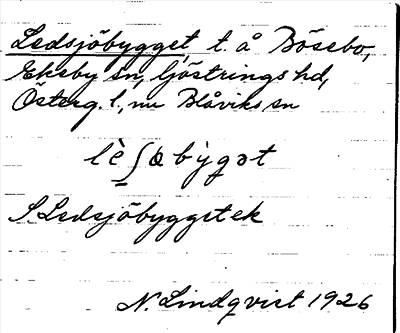 Ledsjöbygget t. å Bösebo,
Ekeby sn, Göstrings hd,
Österg. l., nu Blåviks sn
lè̱ʃøbỳgət
S. Ledsjöbygget ek
N. Lindqvist 1926